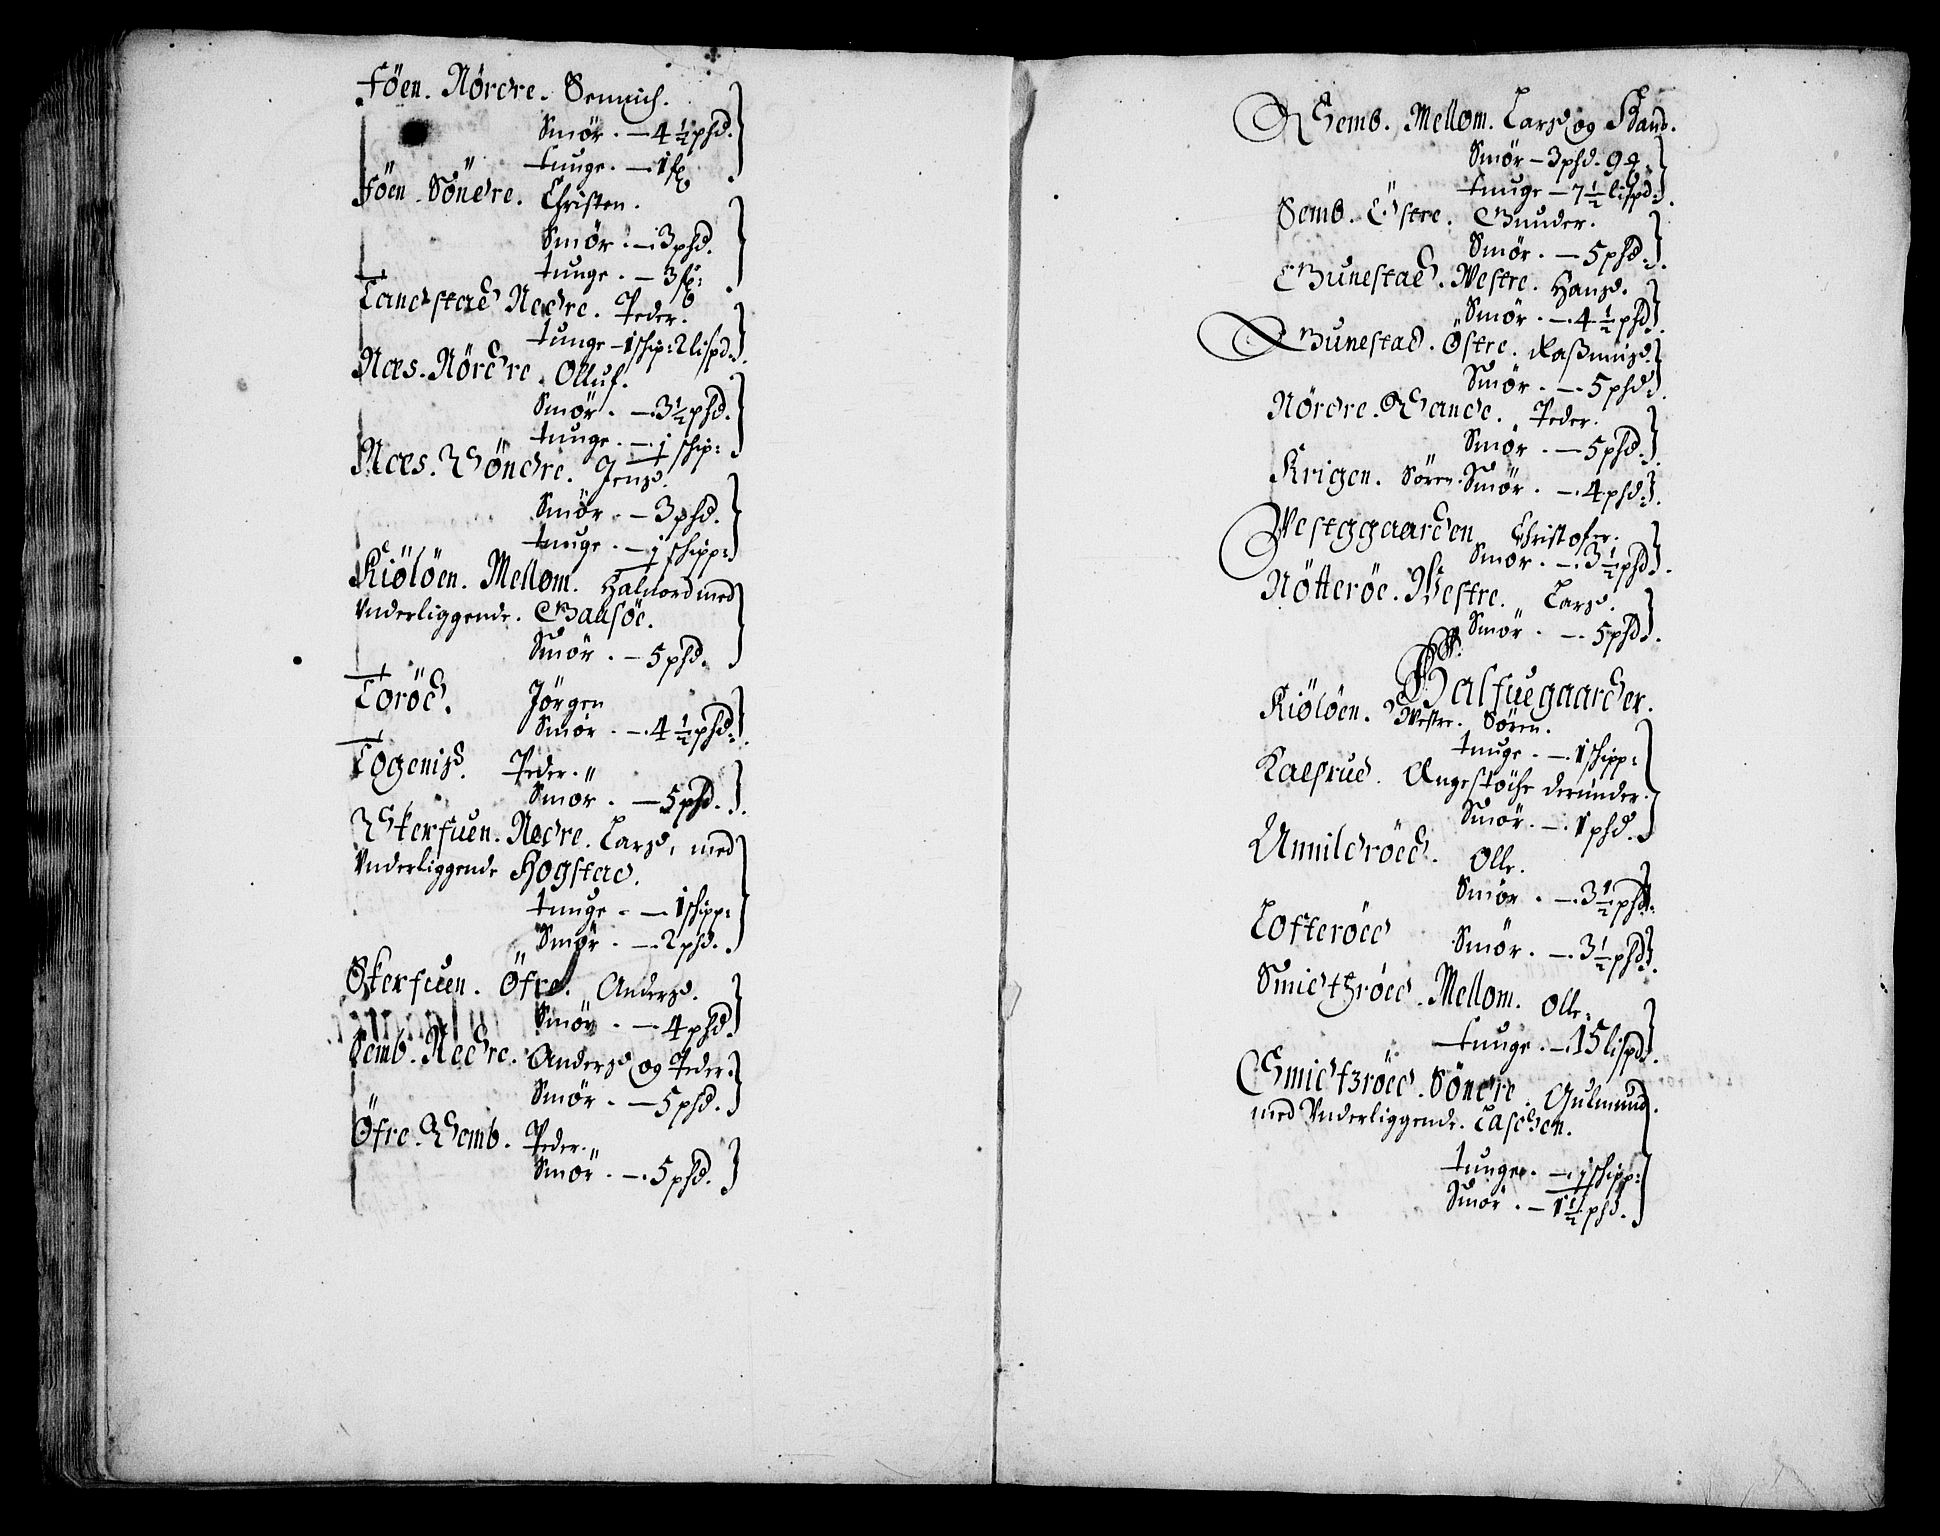 Föen. Nördre. Sennich.
Smör. — 4 1/2 phd.
tunge. — 1 fg
Föen. Söndre. Christen.
Smör. — 3 phd.
tunge. — 3 fg:
Tandstad Nedre. Peder.
tunge — 1 schip: 2 lispd:
Næs. Nördre. Olluf.
Smör. — 3 1/2 phd.
tunge. — j schip:
Næs. Söndre. Jensd.
Smör. — 3 phd.
tunge. — j schipp:
Kiölöen. Mellom. Halvord med
Vnderliggende. Gaasöe.
Smör. — 5 phd.
Toröd. Jörgen
Smör. — 4 1/2 phd:
Togenisd. Peder.
Smör. — 5 phd.
Skerfuen. Nedre. Larsd, med
Vnderliggende Hogstad.
tunge. — 1 schipp:
Smör. — 2 phd.
Skerfuen. Öfre. Andersd.
Smör. — 4 phd.
Semb. Nedre. Andersd og Peder.
Smör. — 5 phd.
Öfre. Semb. Peder.
Smör. — 5 phd.
Semb. Mellom. Larsd og Hans.
Smör — 3 phd. 9 q.
tunge — 7 1/2 lispd:
Semb. Östre. Gunder.
Smör. — 5 phd:
Gunestad. Westre. Hansd.
Smör. — 4 1/2 phd
Gunestad. Östre. Rasmusd.
Smör. — 5 phd.
Nördre. Sande. Peder.
Smör. — 5 phd.
Krigen. Sören. Smör. — 4 phd:
Westggaarden Christofer.
Smör. — 3 1/2 phd.
Nötteröe. Westre. Larsd.
Smör. — 5 phd.
Halfuegaarder.
Kiölöen. Westre. Sören.
tunge. — 1 schipp:
Kalsrud. Angestöche derunder.
Smör. — 1 phd.
Unnildröed. Olle.
Smör. — 3 1/2 phd:
Lofteröed Smör. — 3 1/2 phd:
Smidtzröed. Mellom. Olle.
tunge. — 15 lispd:
Smidtzröed. Söndre. Gulmund.
med Vnderliggende. Laschen.
tunge. — j schipp:
Smör. — 1 1/2 phd.